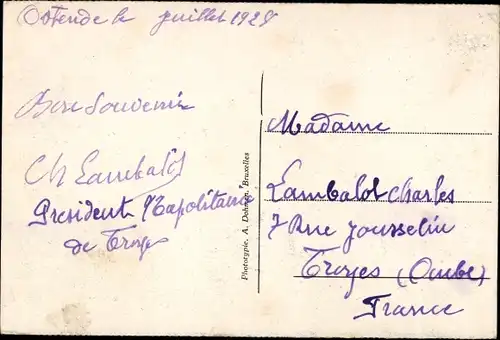 Ostende le juillet 1928
Bon Souvenir
Ch Lambalot
President Napolitaine
de Troyes
Phototypie. A. Dohmen, Bruxelles
Madame
Lambalot Charles
7 Rue Jousselin
Troyes (Aube)
France